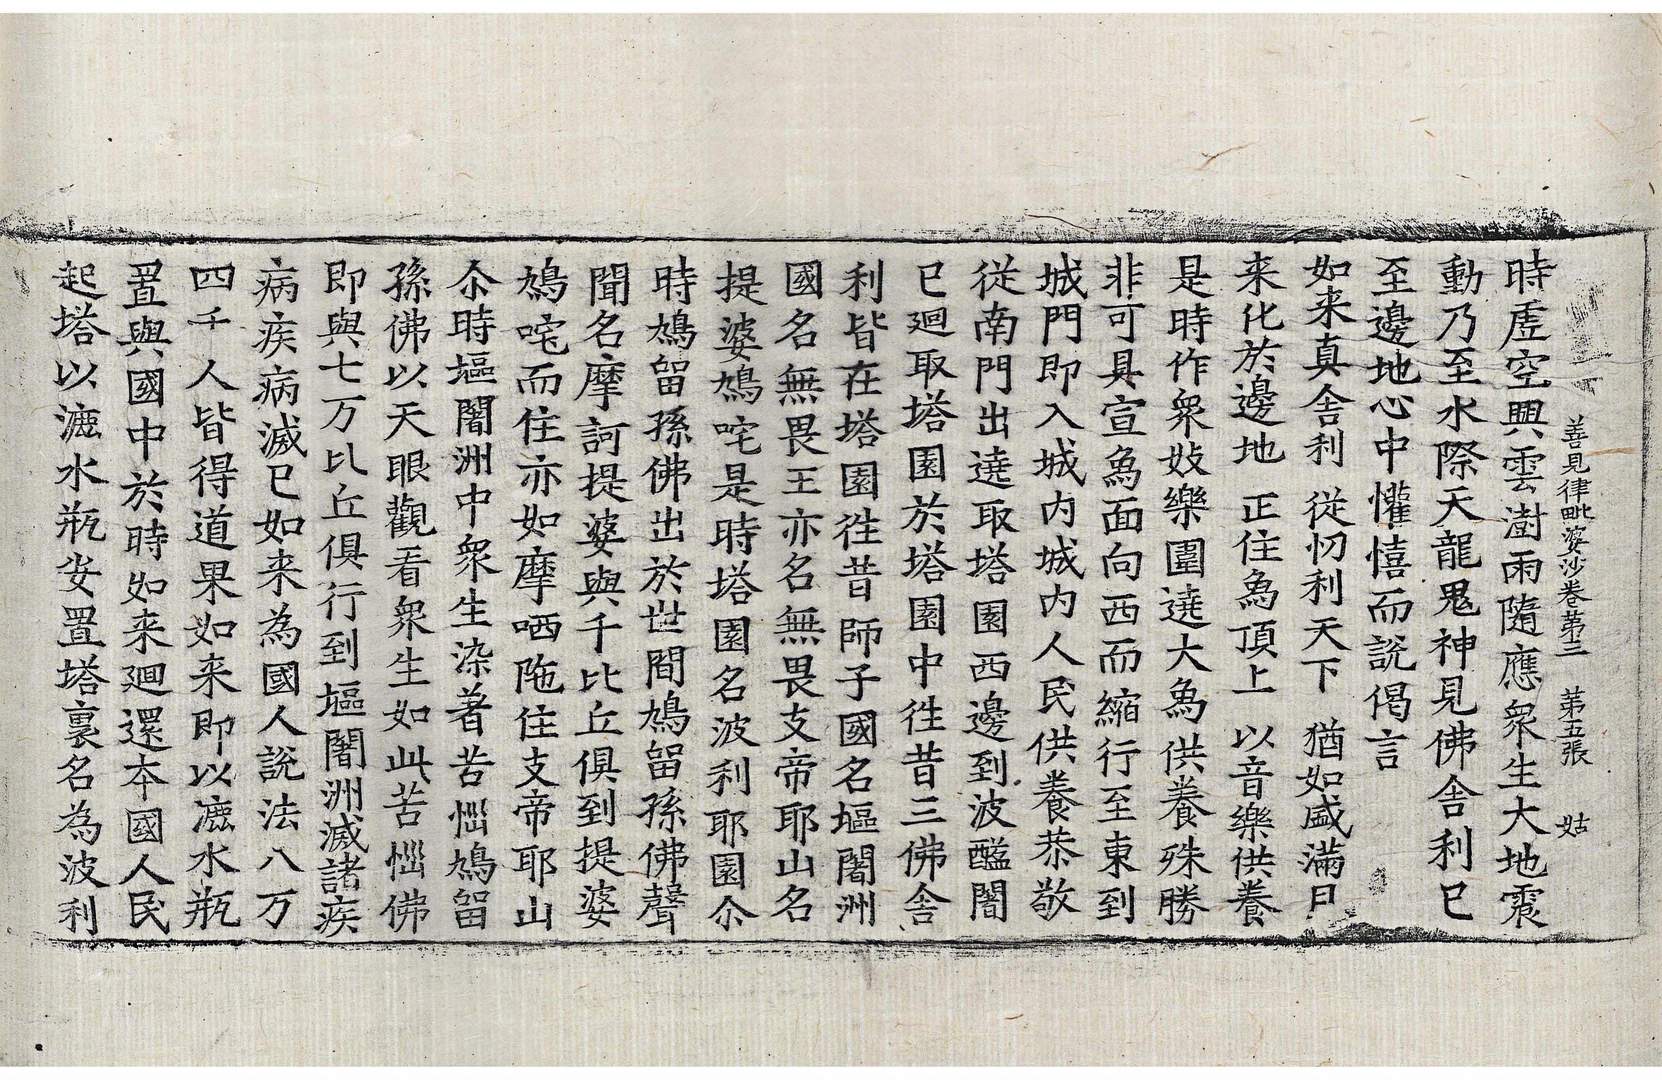 善見律毗婆沙卷苐三　苐五張　姑
時虛空興雲澍雨隨應衆生大地震
動乃至水際天龍鬼神見佛舎利已
至邊地心中懽憘而說偈言
如来真舎利　從忉利天下　猶如盛滿月
来化於邊地　正住爲頂上　以音樂供養
是時作衆妓樂圍遶大爲供養殊勝
非可具宣爲面向西而縮行至東到
城門即入城内城内人民供養恭敬
從南門出遶取塔園西邊到波醯闍
已廻取塔園於塔園中徃昔三佛舎
利皆在塔園徃昔師子國名塸闍洲
國名無畏王亦名無畏支帝耶山名
提婆鳩咤是時塔園名波利耶園尒
時鳩留孫佛出於世間鳩留孫佛聲
聞名摩訶提婆與千比丘俱到提婆
鳩咤而住亦如摩哂陁住支帝耶山
尒時塸闍洲中衆生染著苦惱鳩留
孫佛以天眼觀看衆生如此苦惱佛
即與七万比丘俱行到塸闍洲滅諸疾
病疾病滅已如来為國人說法八万
四千人皆得道果如来即以漉水瓶
置與國中於時如来廻還本國人民
起塔以漉水瓶安置塔裏名為波利